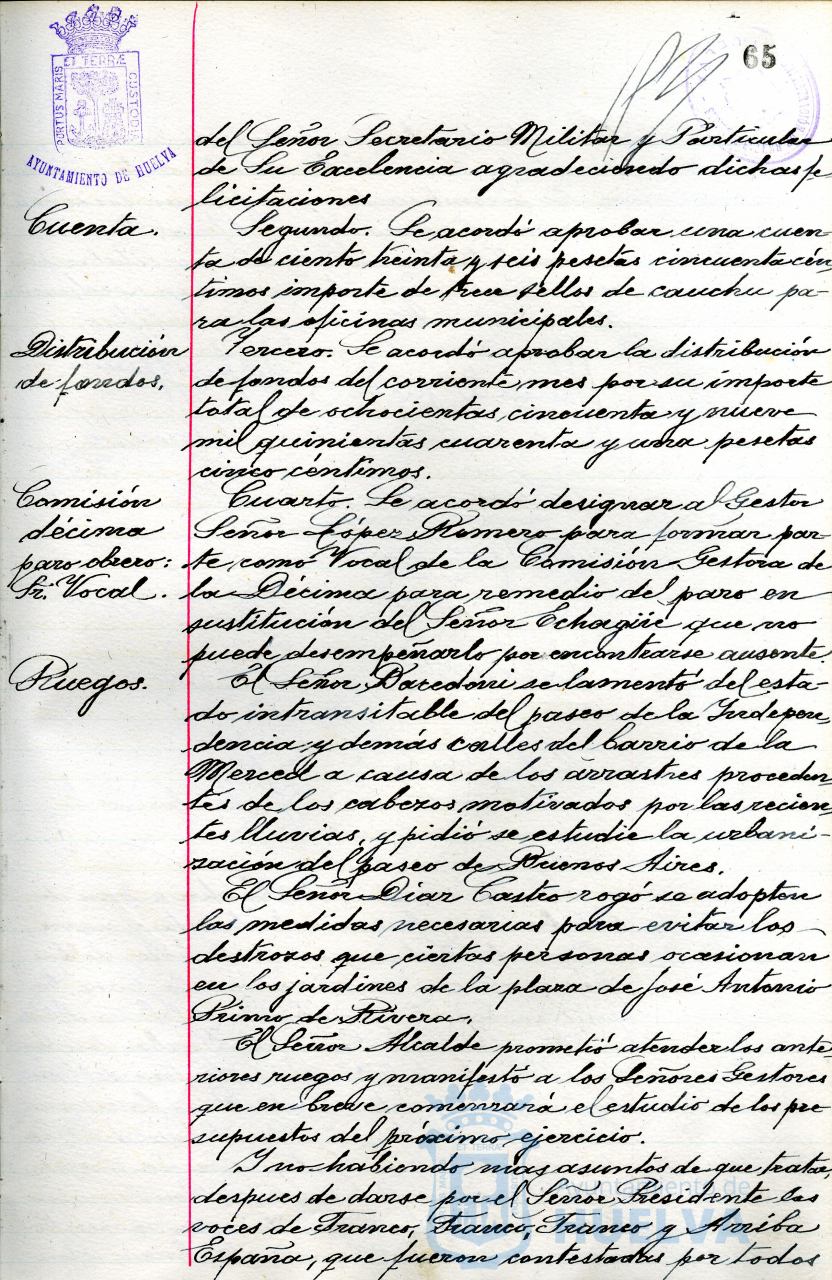 65
PORTUS MARIS ET TERRÆ CUSTODIA
AYUNTAMIENTO DE HUELVA
del Señor Secretario Militar y Particular
de Su Excelencia agradeciendo dichas fe
licitaciones
Cuenta.
Segundo. Se acordó aprobar una cuen-
ta de ciento treinta y seis pesetas cincuenta cén
timos importe de trece sellos de cauchu pa-
ra las oficinas municipales.
Distribución
de fondos.
Tercero. Se acordó aprobar la distribución
de fondos del corriente mes por su importe
total de ochocientas cincuenta y nueve
mil quinientas cuarenta y una pesetas
cinco céntimos.
Comisión
décima
paro obrero:
Sr. Vocal.
Cuarto. Se acordó designar al Gestor
Señor López Romero para formar par-
te como Vocal de la Comisión Gestora de
la Décima para remedio del paro en
sustitución del Señor Echagüe que no
puede desempeñarlo por encontrarse ausente.
Ruegos.
El Señor Dacedoni se lamentó del esta-
do intransitable del paseo de la Indepen-
dencia y demás calles del barrio de la
Merced a causa de los arrastres proceden-
tes de los cabezos, motivados por las recien-
tes lluvias, y pidió se estudie la urbani-
zación del paseo de Buenos Aires.
El Señor Diaz Castro rogó se adopten
las medidas necesarias para evitar los
destrozos que ciertas personas ocasionan
en los jardines de la plaza de José Antonio
Primo de Rivera.
El Señor Alcalde prometió atender los ante-
riores ruegos y manifestó a los Señores Gestores
que en breve comenzará el estudio de los pre
supuestos del próximo ejercicio.
Y no habiendo mas asuntos de que tratar,
despues de darse por el Señor Presidente las
voces de Franco, Franco, Franco y Arriba
España, que fueron contestadas por todos
Ayuntamiento de
HUELVA